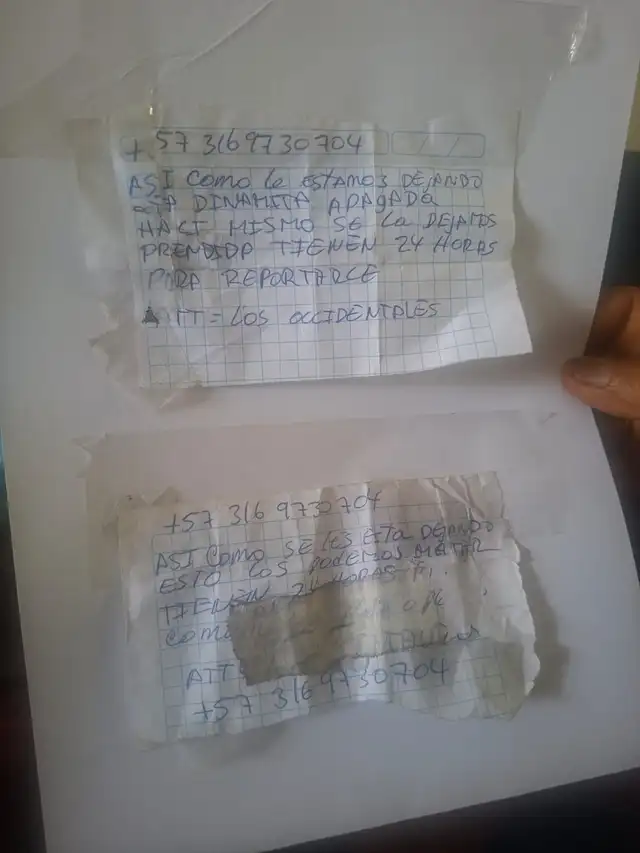 +57 3169730704
ASI Como le ESTAMOS DEJANDO
ESTA DINAMITA APAGADA
HACI MISMO SE La DEJAMOS
PRENDIDA TIENEN 24 HORAS
PARA REPORTARCE
ATT = LOS OCCIDENTALES
+57 316 9730704
ASI Como SE LES ESTA DEJANDO
ESTO LOS PODEMOS MATAR
TIENEN 24 HORAS
ATT
+57 316 9730704